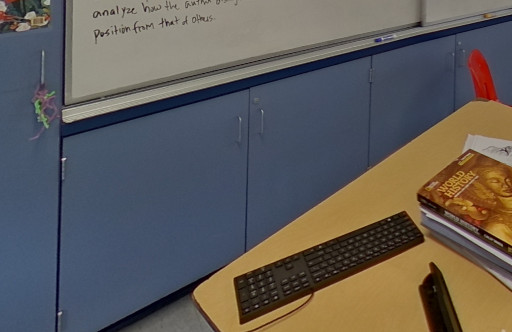 analyze how the author
position from that of others.
WORLD
HISTORY